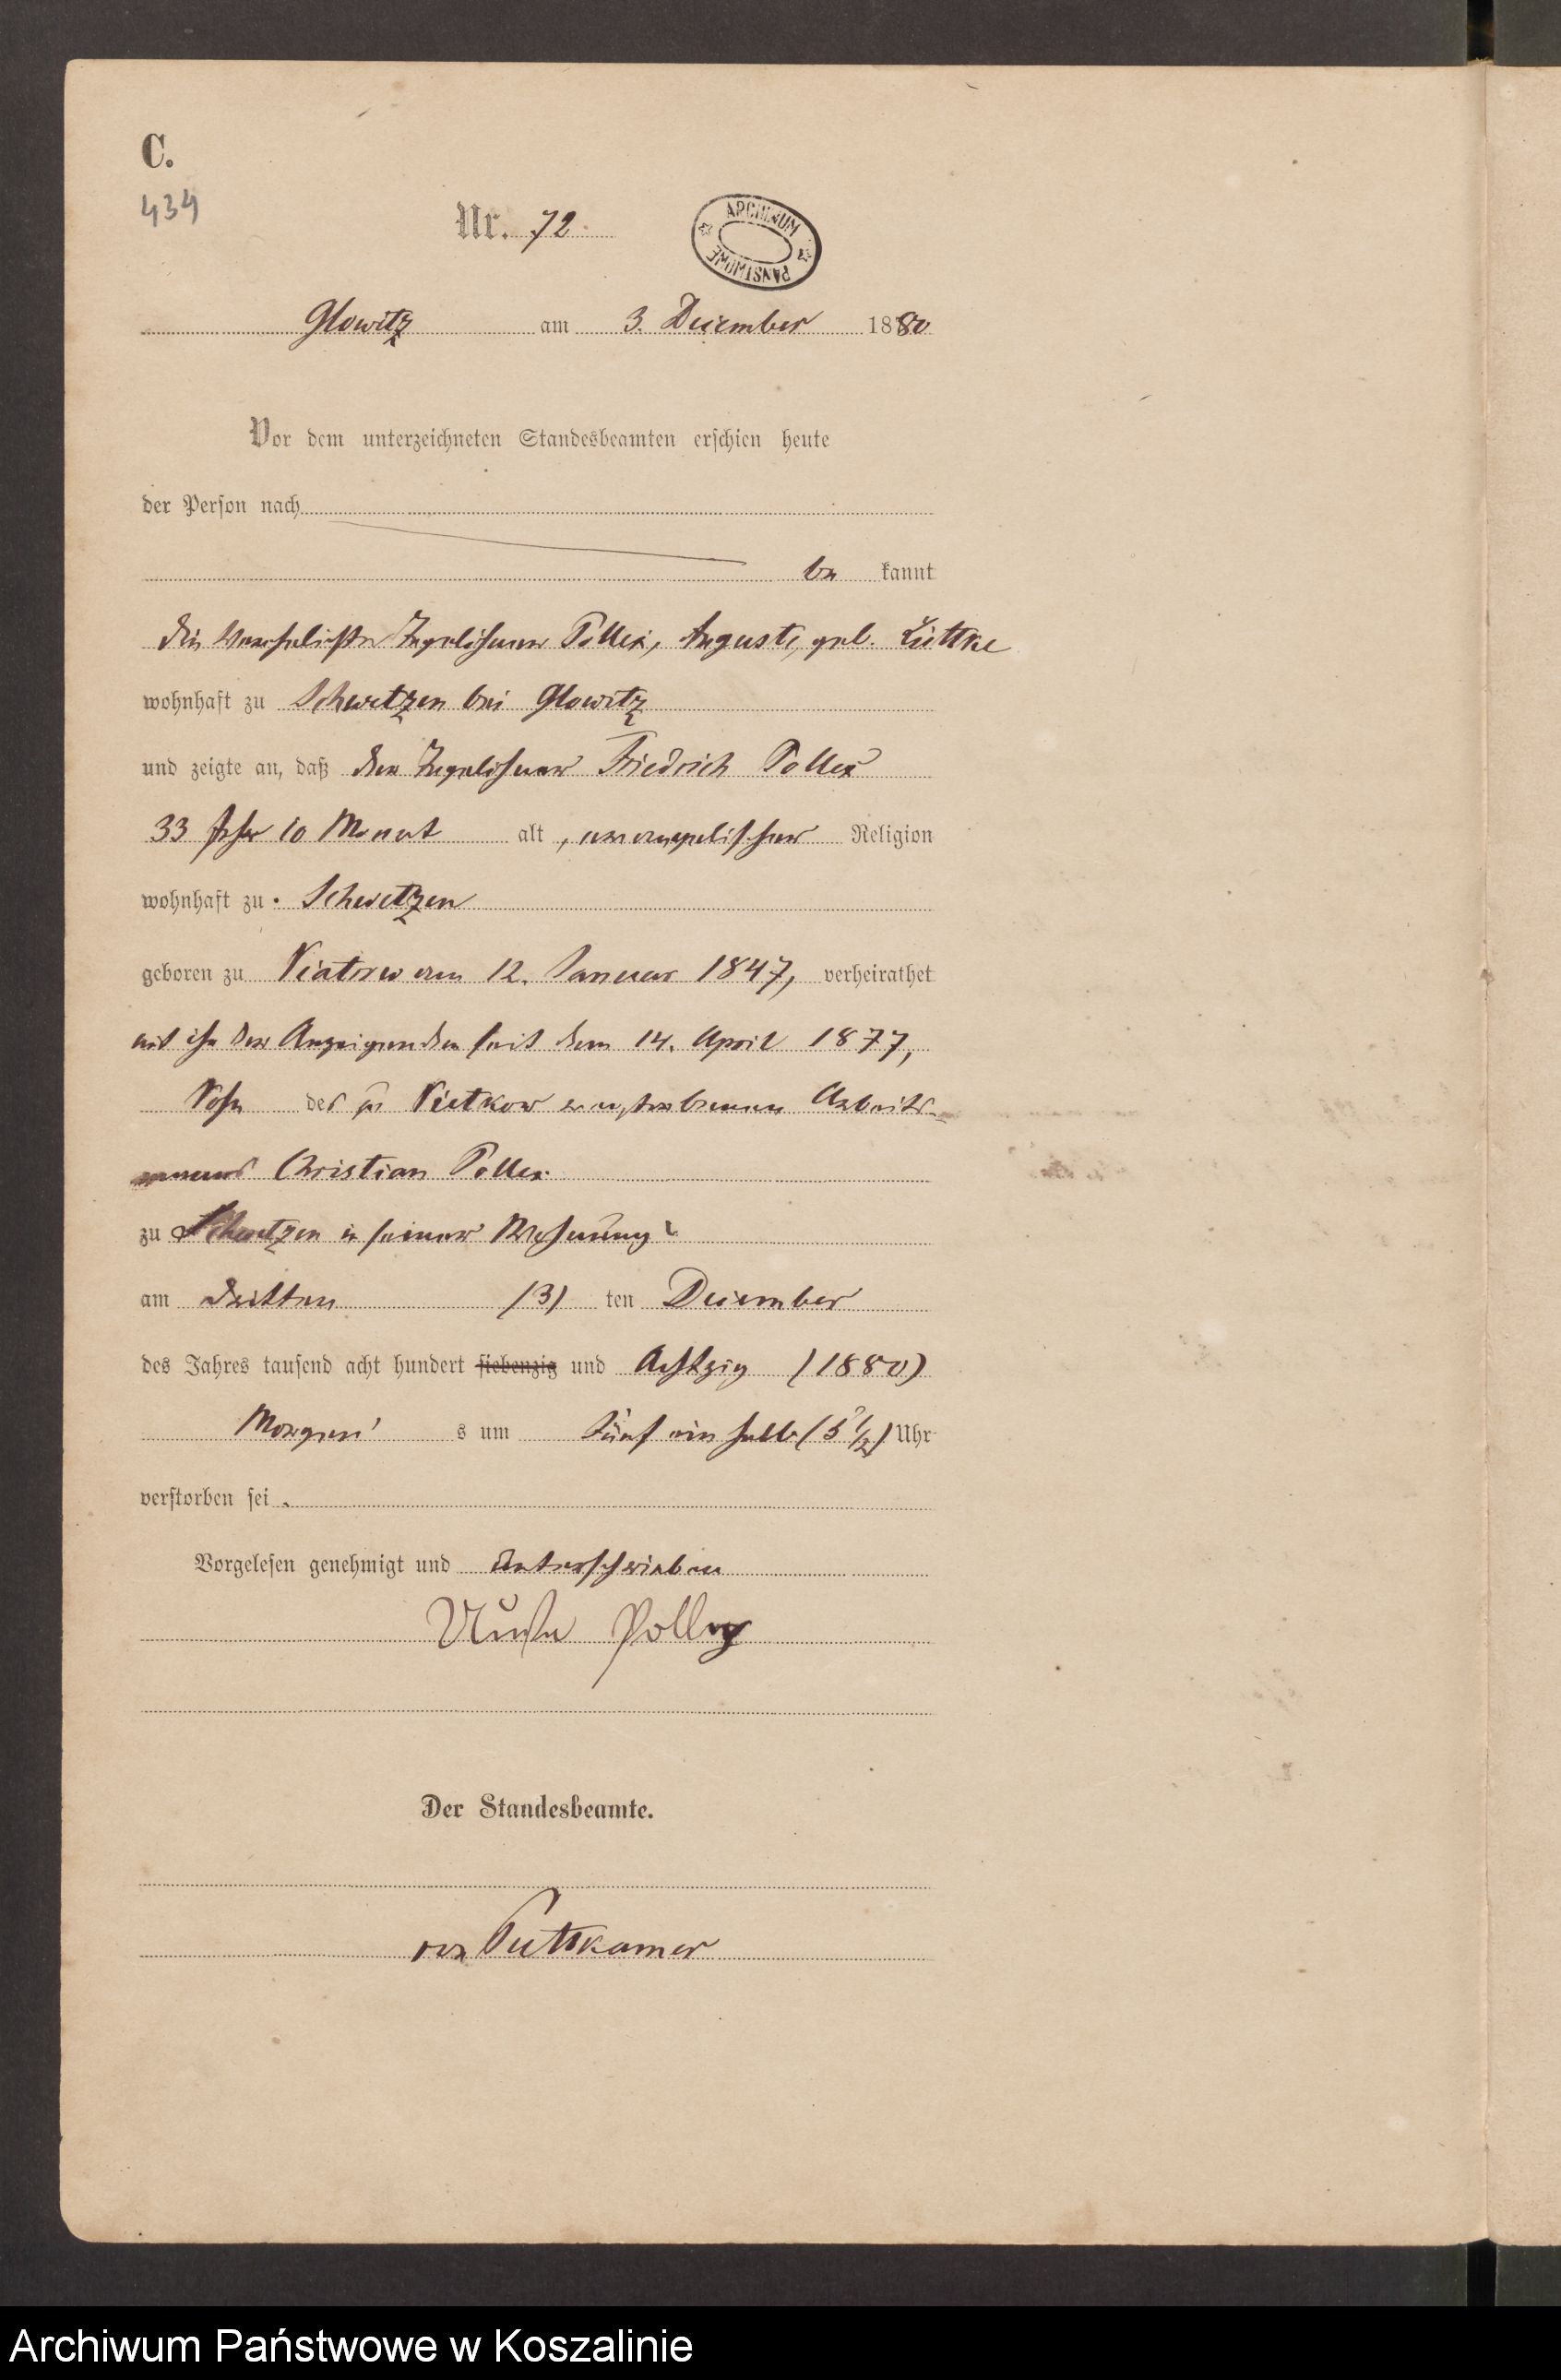 C.
434
Nr. 72.
ARCHIWUM PAŃSTWOWE
Glowitz am 3. December 1880
Vor dem unterzeichneten Standesbeamten erschien heute
der Person nach
be kannt
die verehelichte Pollex, Auguste, geb. Lüttke
wohnhaft zu Schwetzen bei Glowitz
und zeigte an, daß der Friedrich Pollex
33 Jahr 10 Monat alt, evangelischer Religion
wohnhaft zu Schwetzen
geboren zu am 12. Januar 1847, verheirathet
mit ihr der Anzeigenden seit dem 14. April 1877,
Sohn des zu Vietkow verstorbenen Arbeits-
manns Christian Pollex
zu Schwetzen in seiner Wohnung
am dritten (3) ten December
des Jahres tausend acht hundert siebenzig und Achtzig (1880)
Morgen s um fünf ein halb (5 1/2) Uhr
verstorben sei.
Vorgelesen genehmigt und unterschrieben
Pollex
Der Standesbeamte.
von Puttkamer
Archiwum Państwowe w Koszalinie